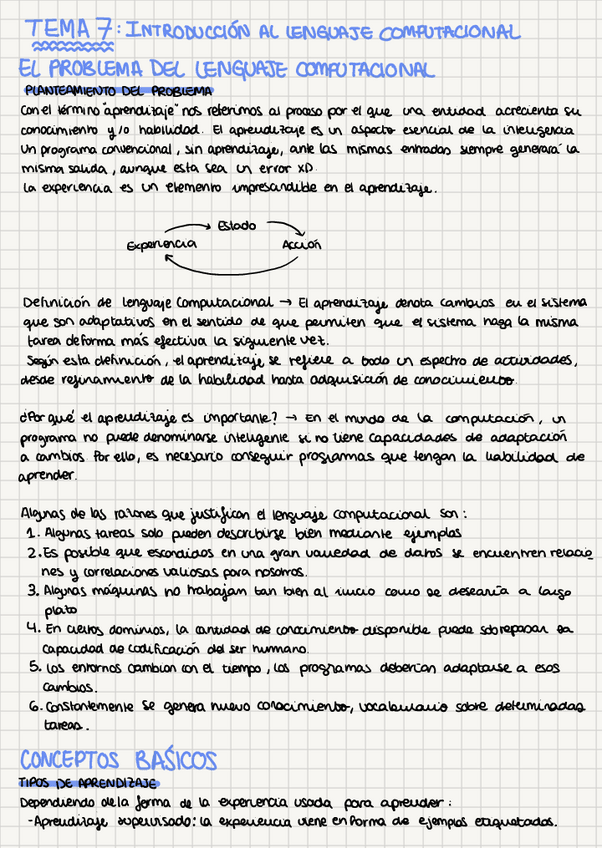 TEMA 7: INTRODUCCIÓN AL LENGUAJE COMPUTACIONAL
EL PROBLEMA DEL LENGUAJE COMPUTACIONAL
PLANTEAMIENTO DEL PROBLEMA
Con el término "aprendizaje" nos referimos al proceso por el que una entidad acrecienta su
conocimiento y/o habilidad. El aprendizaje es un aspecto esencial de la inteligencia
Un programa convencional, sin aprendizaje, ante las mismas entradas siempre generará la
misma salida, aunque esta sea un error xD.
La experiencia es un elemento imprescindible en el aprendizaje.
Estado
Experiencia Acción
Definición de lenguaje Computacional → El aprendizaje denota cambios en el sistema
que son adaptativos en el sentido de que permiten que el sistema haga la misma
tarea de forma más efectiva la siguiente vez.
Según esta definición, el aprendizaje se refiere a todo un espectro de actividades,
desde refinamiento de la habilidad hasta adquisición de conocimiento.
¿Por qué el aprendizaje es importante? → En el mundo de la computación, un
programa no puede denominarse inteligente si no tiene capacidades de adaptación
a cambios. Por ello, es necesario conseguir programas que tengan la habilidad de
aprender.
Algunas de las razones que justifican el lenguaje computacional son:
1. Algunas tareas solo pueden describirse bien mediante ejemplos
2. Es posible que escondidos en una gran variedad de datos se encuentren relacio_
nes y correlaciones valiosas para nosotros.
3. Algunas máquinas no trabajan tan bien al inicio como se desearía a largo
plato
4. En ciertos dominios, la cantidad de conocimiento disponible puede sobrepasar la
capacidad de codificación del ser humano.
5. Los entornos cambian con el tiempo, los programas deberían adaptarse a esos
cambios.
6. Constantemente se genera nuevo conocimiento, vocabulario sobre determinadas
tareas.
CONCEPTOS BÁSICOS
TIPOS DE APRENDIZAJE
Dependiendo de la forma de la experiencia usada para aprender:
-Aprendizaje supervisado: la experiencia viene en forma de ejemplos etiquetados.